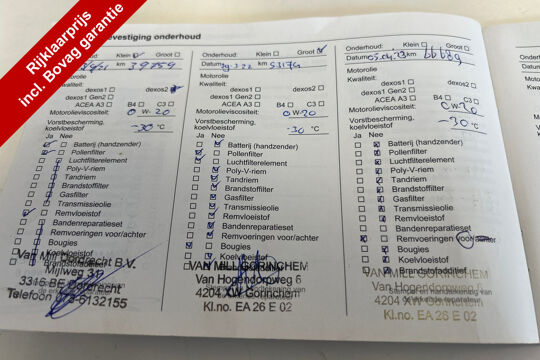 Rijklaarprijs
incl. Bovag garantie
vestiging onderhoud
Klein Groot
km 39759
dexos1 dexos2
dexos1 Gen2
ACEA A3 B4 C3
Motorolieviscositeit: 0 W-20
Vorstbescherming,
koelvloeistof -30 °C
Ja Nee
Batterij (handzender)
Pollenfilter
Luchtfilterelement
Poly-V-riem
Tandriem
Brandstoffilter
Gasfilter
Transmissieolie
Remvloeistof
Bandenreparatieset
Remvoeringen voor/achter
Bougies
Koelvloeistof
Brandstofadditief
Van Mill Dordrecht B.V.
Mijlweg 31
3316 BE Dordrecht
Telefoon 078-6132155
Onderhoud: Klein Groot
Datum km 53176
Motorolie
Kwaliteit:
dexos1 dexos2
dexos1 Gen2
ACEA A3 B4 C3
Motorolieviscositeit: 0 W-20
Vorstbescherming,
koelvloeistof -30 °C
Ja Nee
Batterij (handzender)
Pollenfilter
Luchtfilterelement
Poly-V-riem
Tandriem
Brandstoffilter
Gasfilter
Transmissieolie
Remvloeistof
Bandenreparatieset
Remvoeringen voor/achter
Bougies
Koelvloeistof
VAN MILL GORINCHEM
Van Hogendorpweg 6
4204 XW Gorinchem
Kl.no. EA 26 E 02
Onderhoud: Klein Groot
Datum km 66689
Motorolie
Kwaliteit:
dexos1 dexos2
dexos1 Gen2
ACEA A3 B4 C3
Motorolieviscositeit: 0 W-20
Vorstbescherming,
koelvloeistof -30 °C
Ja Nee
Batterij (handzender)
Pollenfilter
Luchtfilterelement
Poly-V-riem
Tandriem
Brandstoffilter
Gasfilter
Transmissieolie
Remvloeistof
Bandenreparatieset
Remvoeringen voor/achter
Bougies
Koelvloeistof
Brandstofadditief
VAN MILL GORINCHEM
Van Hogendorpweg 6
Stempel en handtekening van
4204 XW Gorinchem
de erkende reparateur
Kl.no. EA 26 E 02